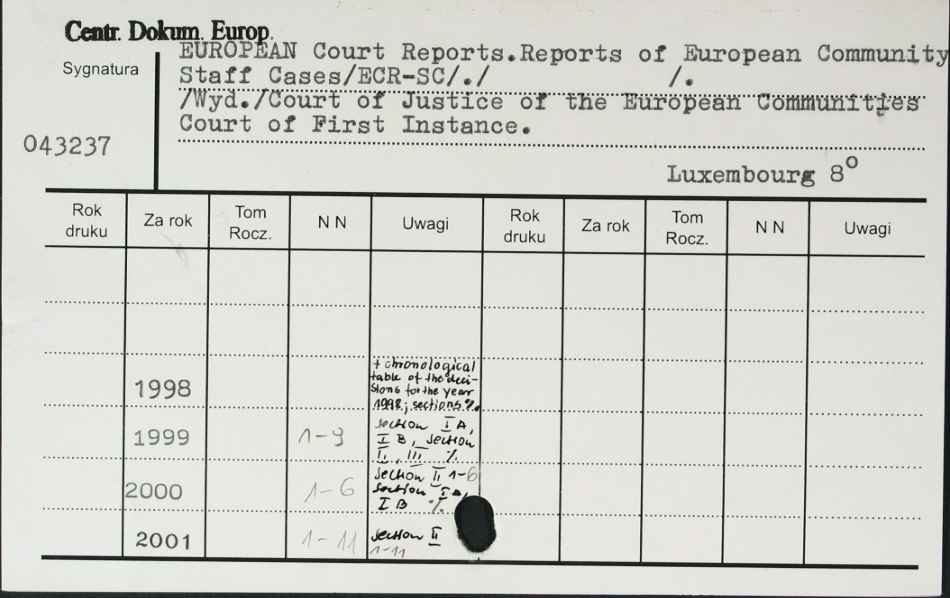 Centr. Dokum. Europ.
Sygnatura
EUROPEAN Court Reports.Reports of European Community
Staff Cases/ECR-SC/./ /.
/Wyd./Court of Justice of the European Communities
Court of First Instance.
043237
Luxembourg 8°
Rok druku Za rok Tom Rocz. N N Uwagi Rok druku Za rok Tom Rocz. N N Uwagi
1998
+ chronological
table of the deci-
sions for the year
1998; sections %.
1999 1-9
section I A,
I B, section
II, III %
2000 1-6
section II 1-6
section I A,
I B %.
2001 1-11
section II
1-11